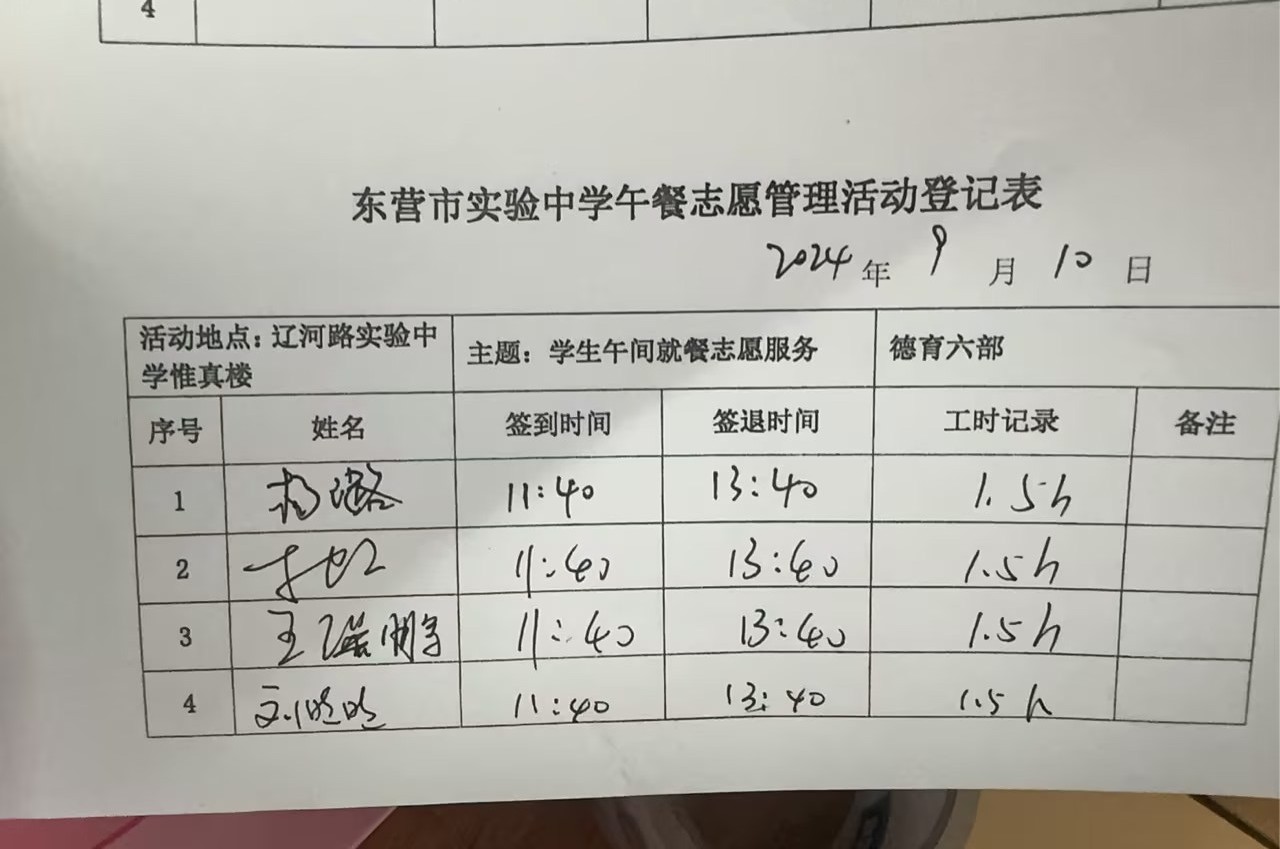 4
东营市实验中学午餐志愿管理活动登记表
2024 年 9 月 10 日
活动地点：辽河路实验中学惟真楼 主题：学生午间就餐志愿服务 德育六部
序号 姓名 签到时间 签退时间 工时记录 备注
1 杨璐 11:40 13:40 1.5h
2 11:40 13:40 1.5h
3 王 11:40 13:40 1.5h
4 刘 11:40 13:40 1.5h